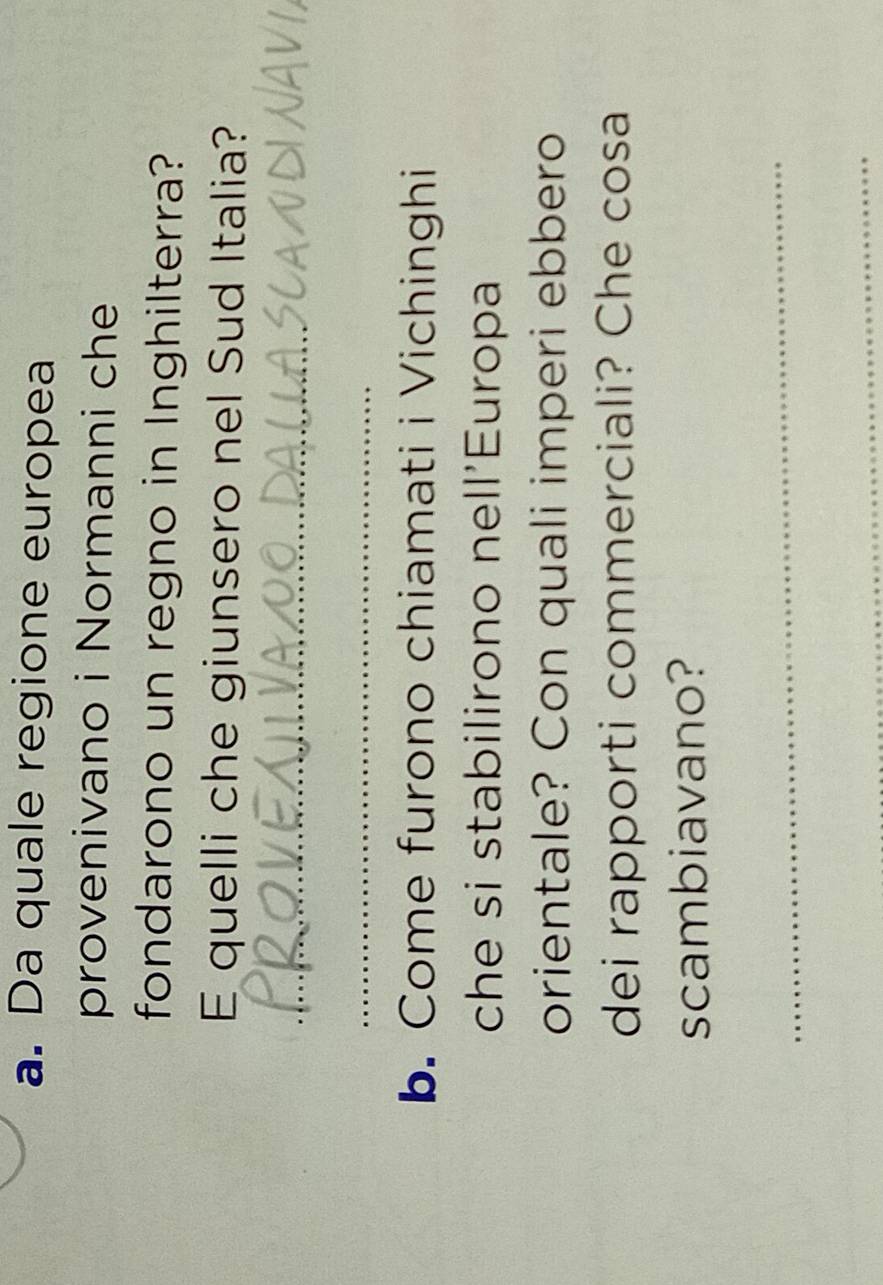 a. Da quale regione europea
provenivano i Normanni che
fondarono un regno in Inghilterra?
E quelli che giunsero nel Sud Italia?
PROVENIVANO DALLA SCANDINAVIA
b. Come furono chiamati i Vichinghi
che si stabilirono nell'Europa
orientale? Con quali imperi ebbero
dei rapporti commerciali? Che cosa
scambiavano?